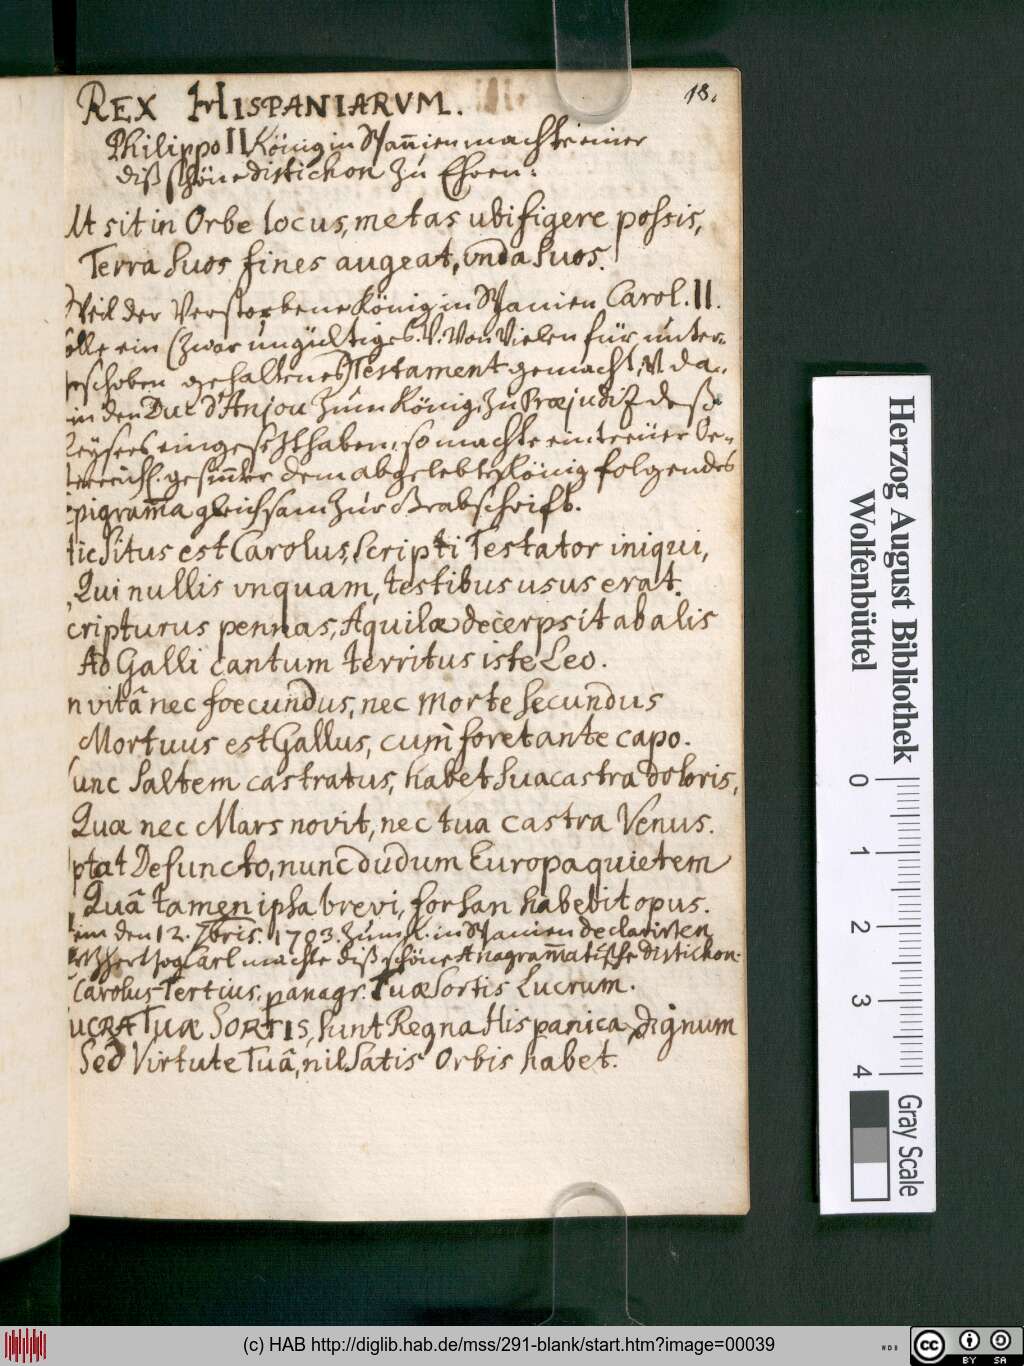 18.
REX HISPANIARVM.
Philippo II König in Spannien machte einer
diß schöne distichon zu Ehren:
Ut sit in Orbe locus, metas ubi figere possis,
Terra suos fines augeat, vnda suos.
Weil der Verstorbene König in Spanien Carol. II.
olle ein (zwar ungültiges. V. Von Vielen für unter-
eschoben gehaltenes) Testament gemacht, V. da-
in den Duc d'Anjou zum König, zu Præjudiz deß
Keysers eingesetzt haben, so machte ein treuer Oe-
terreichl. gesinnter dem abgelebten König folgendes
pigram̄a gleichsam zur Grabschrifft.
ic Situs est Carolus, scripti Testator iniqui,
Qui nullis vnquam, testibus usus erat.
cripturus pennas, Aquilæ decerpsit ab alis
Ad Galli cantum territus iste Leo.
n vitâ nec foecundus, nec morte secundus
Mortuus est Gallus, cum foret ante capo.
unc saltem castratus, habet sua castra doloris,
Quæ nec Mars novit, nec tua castra Venus.
ptat Defuncto, nunc dudum Europa quietem
Quâ tamen ipsa brevi, forsan habebit opus.
em den 12. 7bris. 1703. zum K. in Spanien declarirten
Ertzhertzog Carl machte diß schöne Anagram̄atische Distichon:
Carolus Tertius. p anagr: Tuæ Sortis Lucrum.
UCRA TUÆ SORTIS, sunt Regna Hispanica, dignum
Sed Virtute Tuâ, nil satis Orbis habet.
Herzog August Bibliothek
Wolfenbüttel
0 1 2 3 4
Gray Scale
(c) HAB http://diglib.hab.de/mss/291-blank/start.htm?image=00039
WDB
cc BY SA